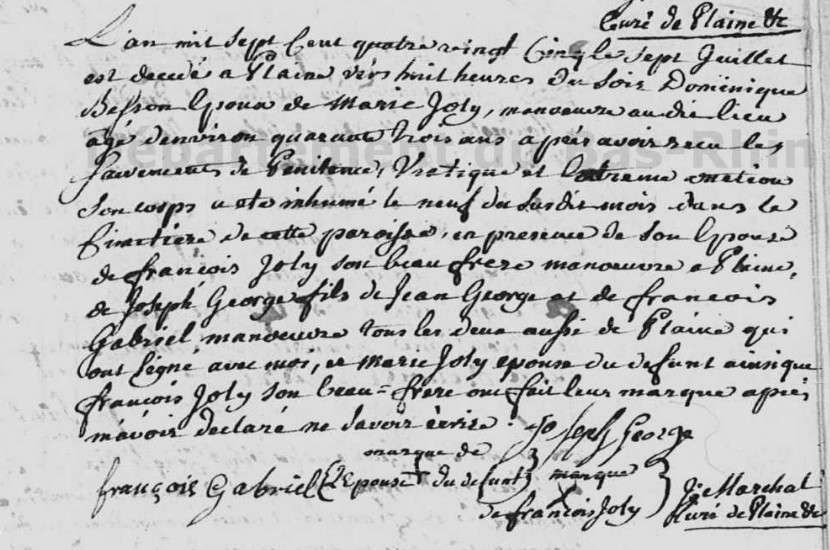 Curé de Plaine &c
L'an mil sept cent quatre vingt Cinq le sept Juillet
est decedé a Plaine vers huit heures du soir Dominique
Besson Epoux de Marie Joly, manoeuvre audit lieu
agé d'environ quarante trois ans après avoir recu les
Sacrements de Penitence, Viatique et Extreme onction
son corps a eté inhumé le neuf du susdit mois dans le
Cimetiere de cette paroisse, en presence de son Epouse
de françois Joly son beau frere manoeuvre a Plaine,
de Joseph George fils de Jean George et de francois
Gabriel, manoeuvre tous les deux aussi de Plaine qui
ont signé avec moi, et Marie Joly epouse du defunt ainsi que
françois Joly son beau-frere ont fait leur marque après
m'avoir declaré ne savoir écrire. Joseph George
marque de
françois Gabriel L'Epouse du defunt marque
de francois Joly
J Marchal
Curé de Plaine &c
Département du Bas-Rhin